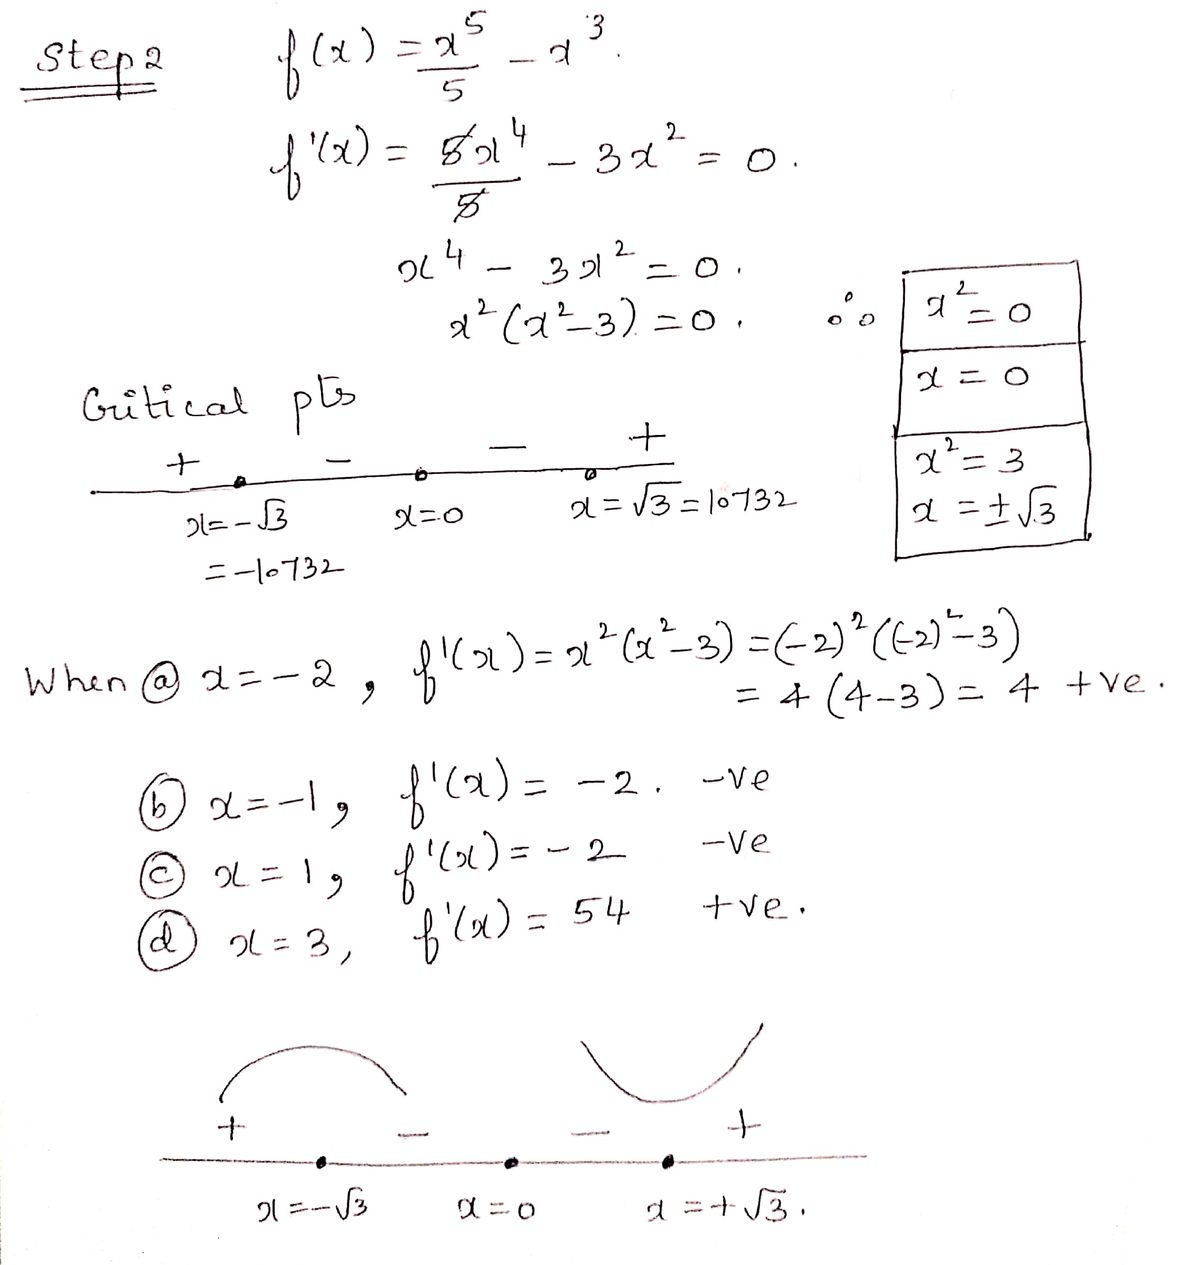 Step 2 f(x) = x⁵/5 - x³.
f'(x) = 5x⁴/5 - 3x² = 0.
x⁴ - 3x² = 0.
x²(x²-3) = 0. ∴ x² = 0
x = 0
x² = 3
x = ±√3
Critical pts
+ - - +
x=-√3 x=0 x=√3=1.732
=-1.732
When ⓐ x=-2, f'(x) = x²(x²-3) = (-2)²((-2)²-3)
= 4(4-3) = 4 +ve.
ⓑ x=-1, f'(x) = -2. -ve
ⓒ x=1, f'(x) = -2 -ve
ⓓ x=3, f'(x) = 54 +ve.
+ - - +
x=-√3 x=0 x=+√3.